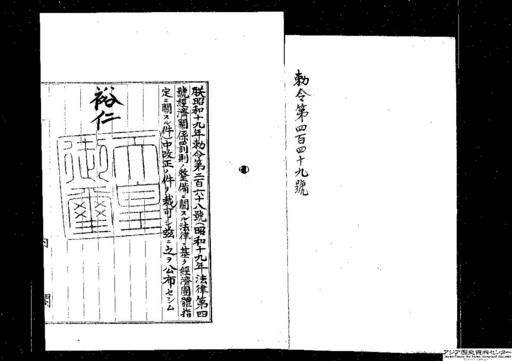 勅令第四百四十九號
朕昭和十九年勅令第二百六十八號(昭和十九年法律第四
號經濟關係罰則ノ整備ニ關スル法律ニ基ク經濟團體指
定ニ關スル件)中改正ノ件ヲ裁可シ茲ニ之ヲ公布セシム
裕仁
天皇
御璽
内閣
アジア歴史資料センター